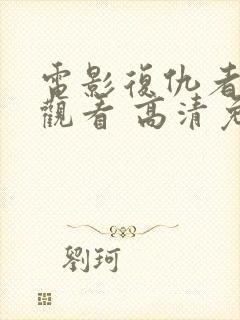 電影復仇者
觀看 高清
劉珂